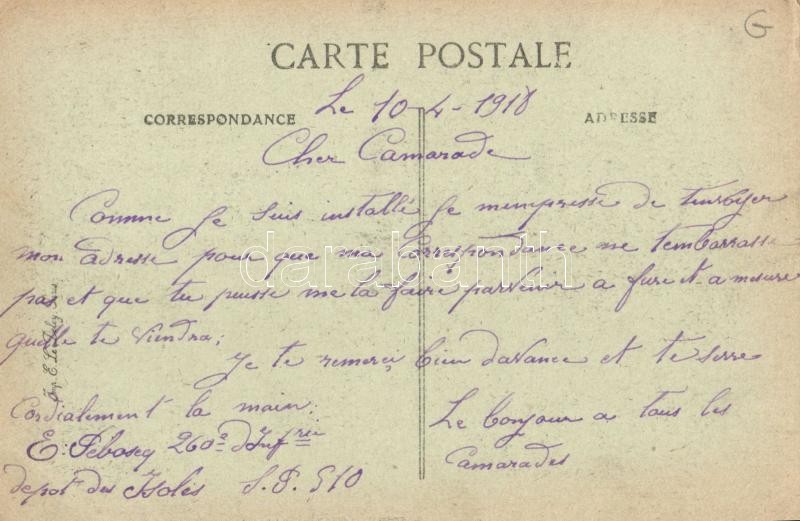 G
CARTE POSTALE
Le 10-4-1918
CORRESPONDANCE
ADRESSE
Cher Camarade
Comme je suis installé je mempresse de
mon adresse pour que ma Correspondance ne tembarrasse
pas et que tu puisse me la faire parvenir a fur et a mesure
quelle te viendra;
je te remerci bien davance et te serre
Cordialement la main.
Le bonjour a tous les
Camarades
E. 260e d'Infrie
depot des Isolés S.P. 510
Imp. E.
darabanth